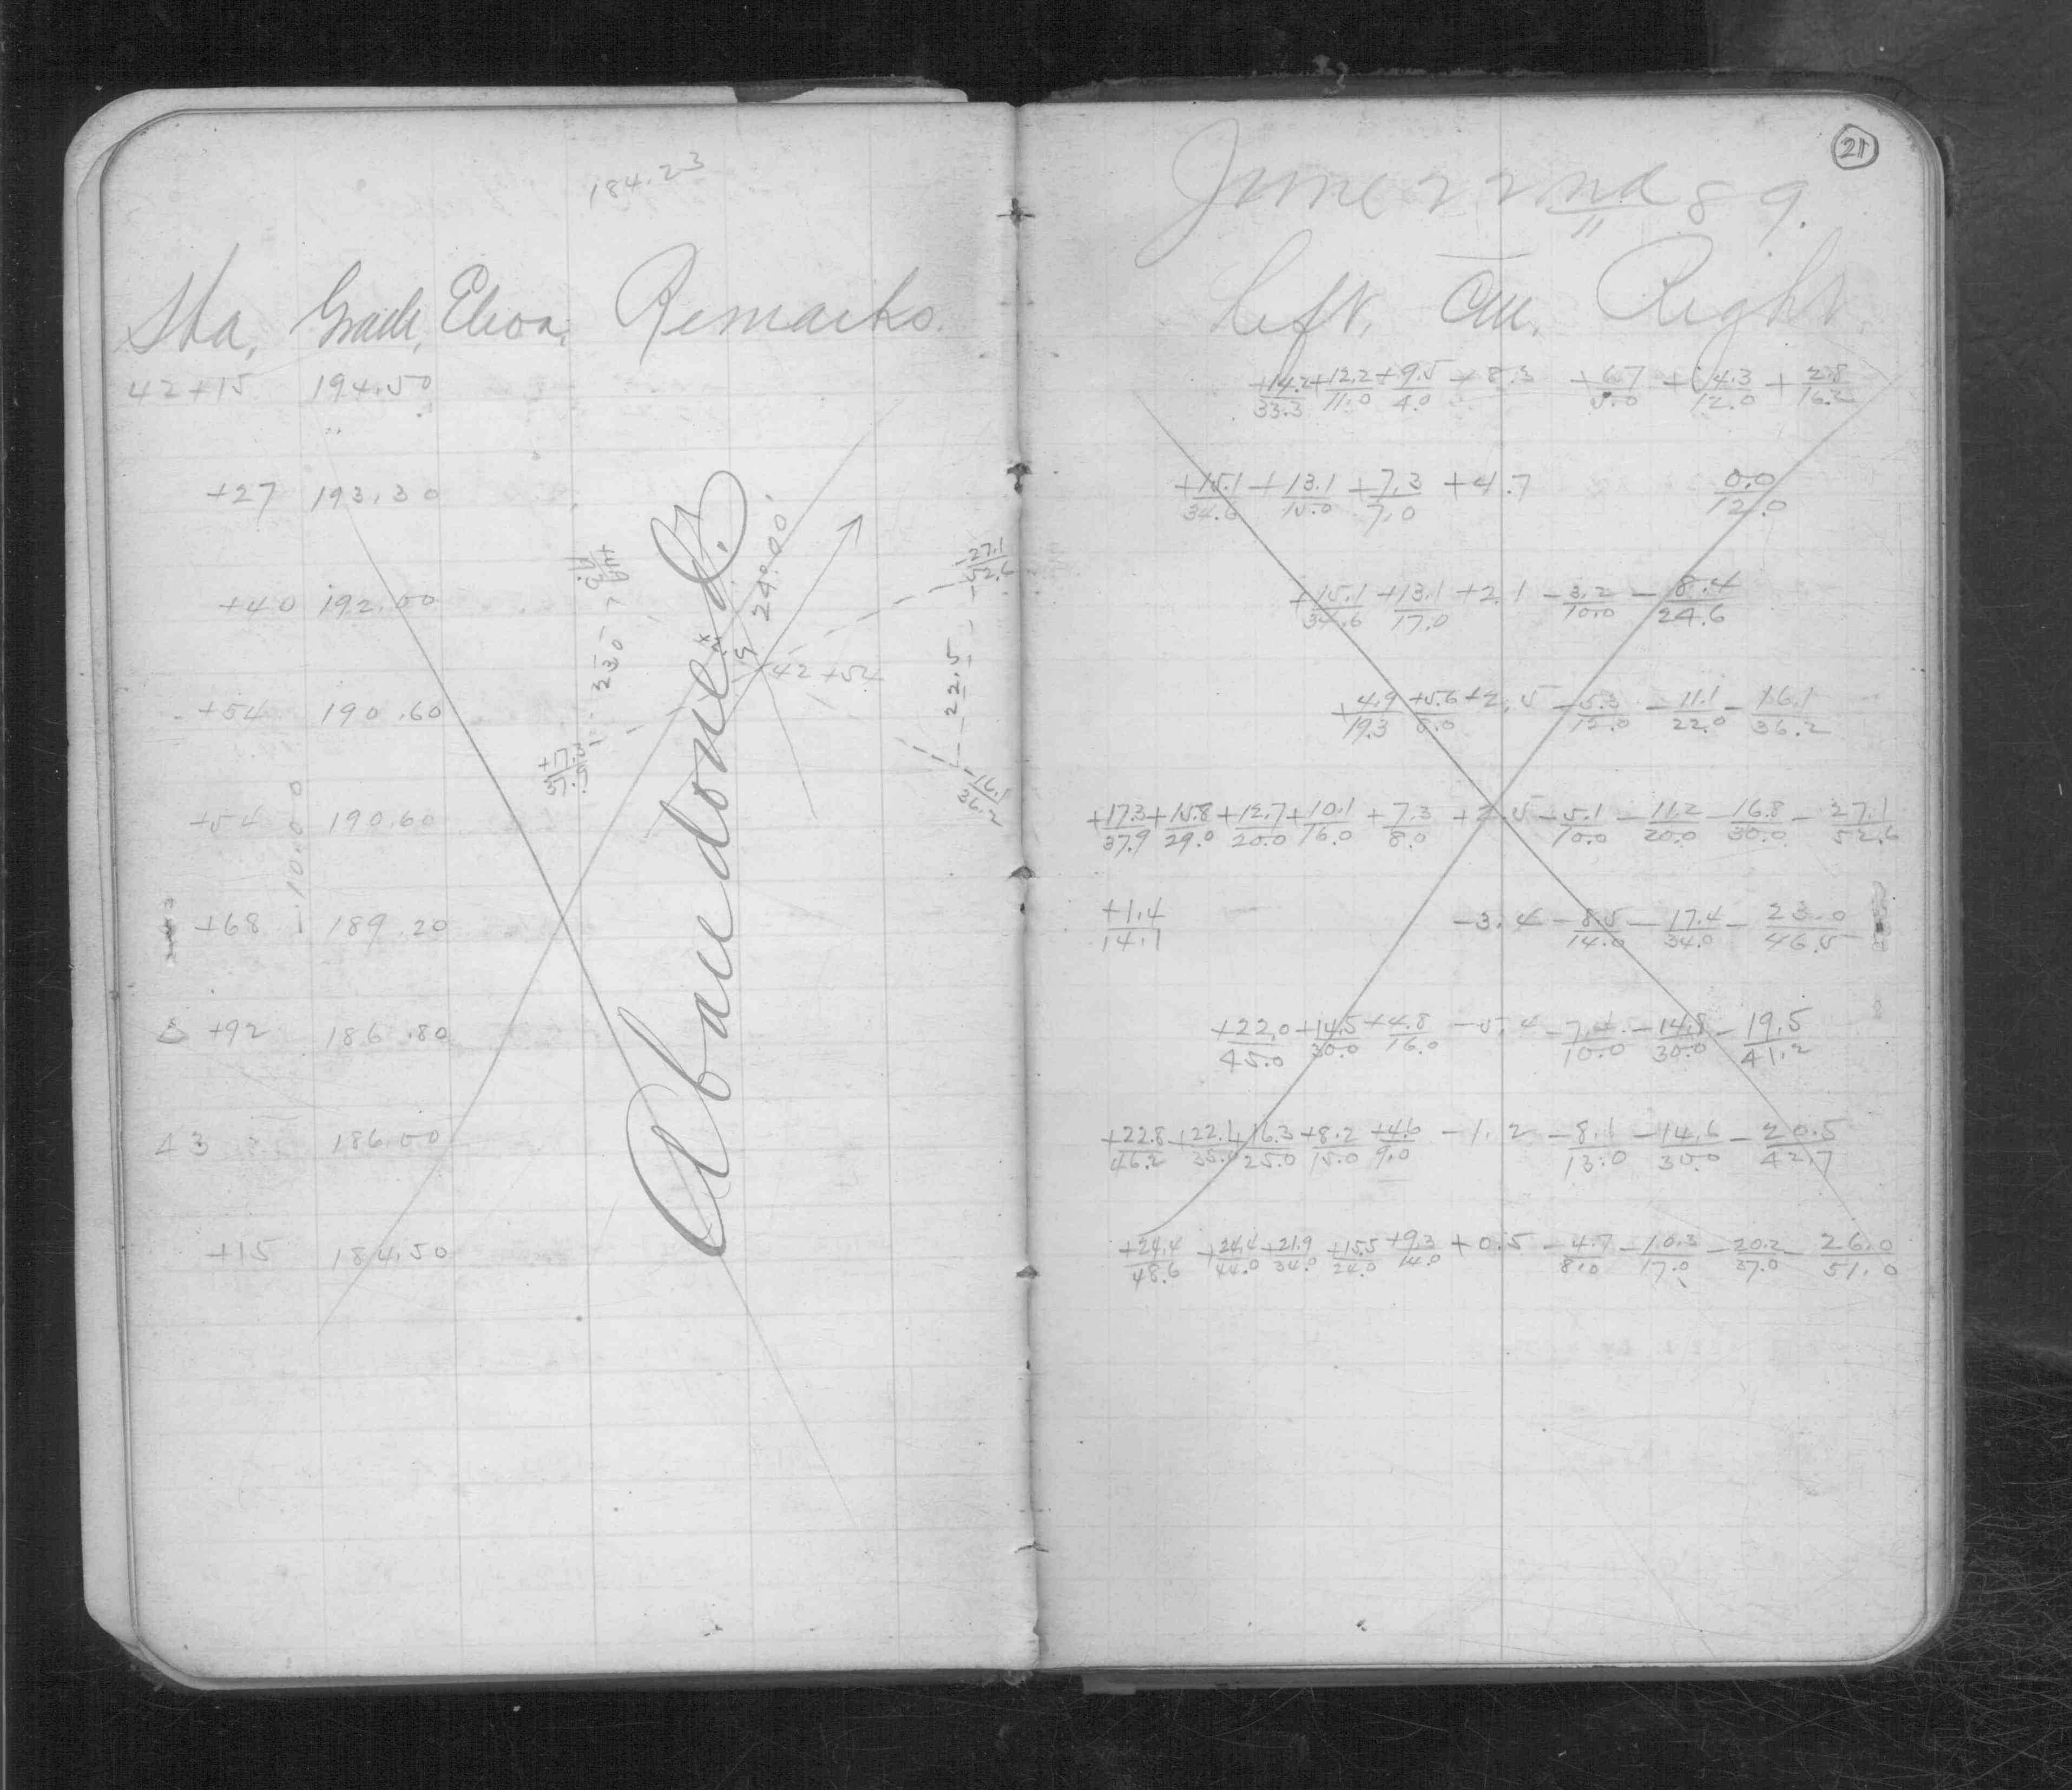 184.23
Sta. Grade, Eleva. Remarks.
42+15 194.50
+27 193.30
+40 192.00
+54 190.60
+54 190.60
+68 189.20
Δ +92 186.80
43 186.00
+15 184.50
-10.00
Abandoned.
24.00
42+54
23.0
22.5
27.1/52.6
+17.3/37.9
16.1/36.2
21
June 22nd 89.
Left. Cen. Right.
+14.2/33.3 +12.2/11.0 +9.5/4.0 +8.3 +6.7/5.0 +4.3/12.0 +2.8/16.2
+15.1/34.6 +13.1/15.0 +7.3/7.0 +4.7 0.0/12.0
+15.1/34.6 +13.1/17.0 +2.1 -3.2/10.0 -8.4/24.6
+4.9/19.3 +5.6/5.0 +2.5 -5.3/15.0 -11.1/22.0 -16.1/36.2
+17.3/37.9 +15.8/29.0 +12.7/20.0 +10.1/16.0 +7.3/8.0 +2.5 -5.1/10.0 -11.2/20.0 -16.8/30.0 -27.1/52.6
+1.4/14.1 -3.4 -8.5/14.0 -17.4/34.0 -23.0/46.5
+22.0/45.0 +14.5/30.0 +4.8/16.0 -5.4 -7.4/10.0 -14.8/30.0 -19.5/41.2
+22.8/46.2 +22.1/35.0 +16.3/25.0 +8.2/15.0 +4.6/9.0 -1.2 -8.1/13.0 -14.6/30.0 -20.5/42.7
+24.4/48.6 +24.4/44.0 +21.9/34.0 +15.5/24.0 +9.3/14.0 +0.5 -4.7/8.0 -10.3/17.0 -20.2/37.0 -26.0/51.0